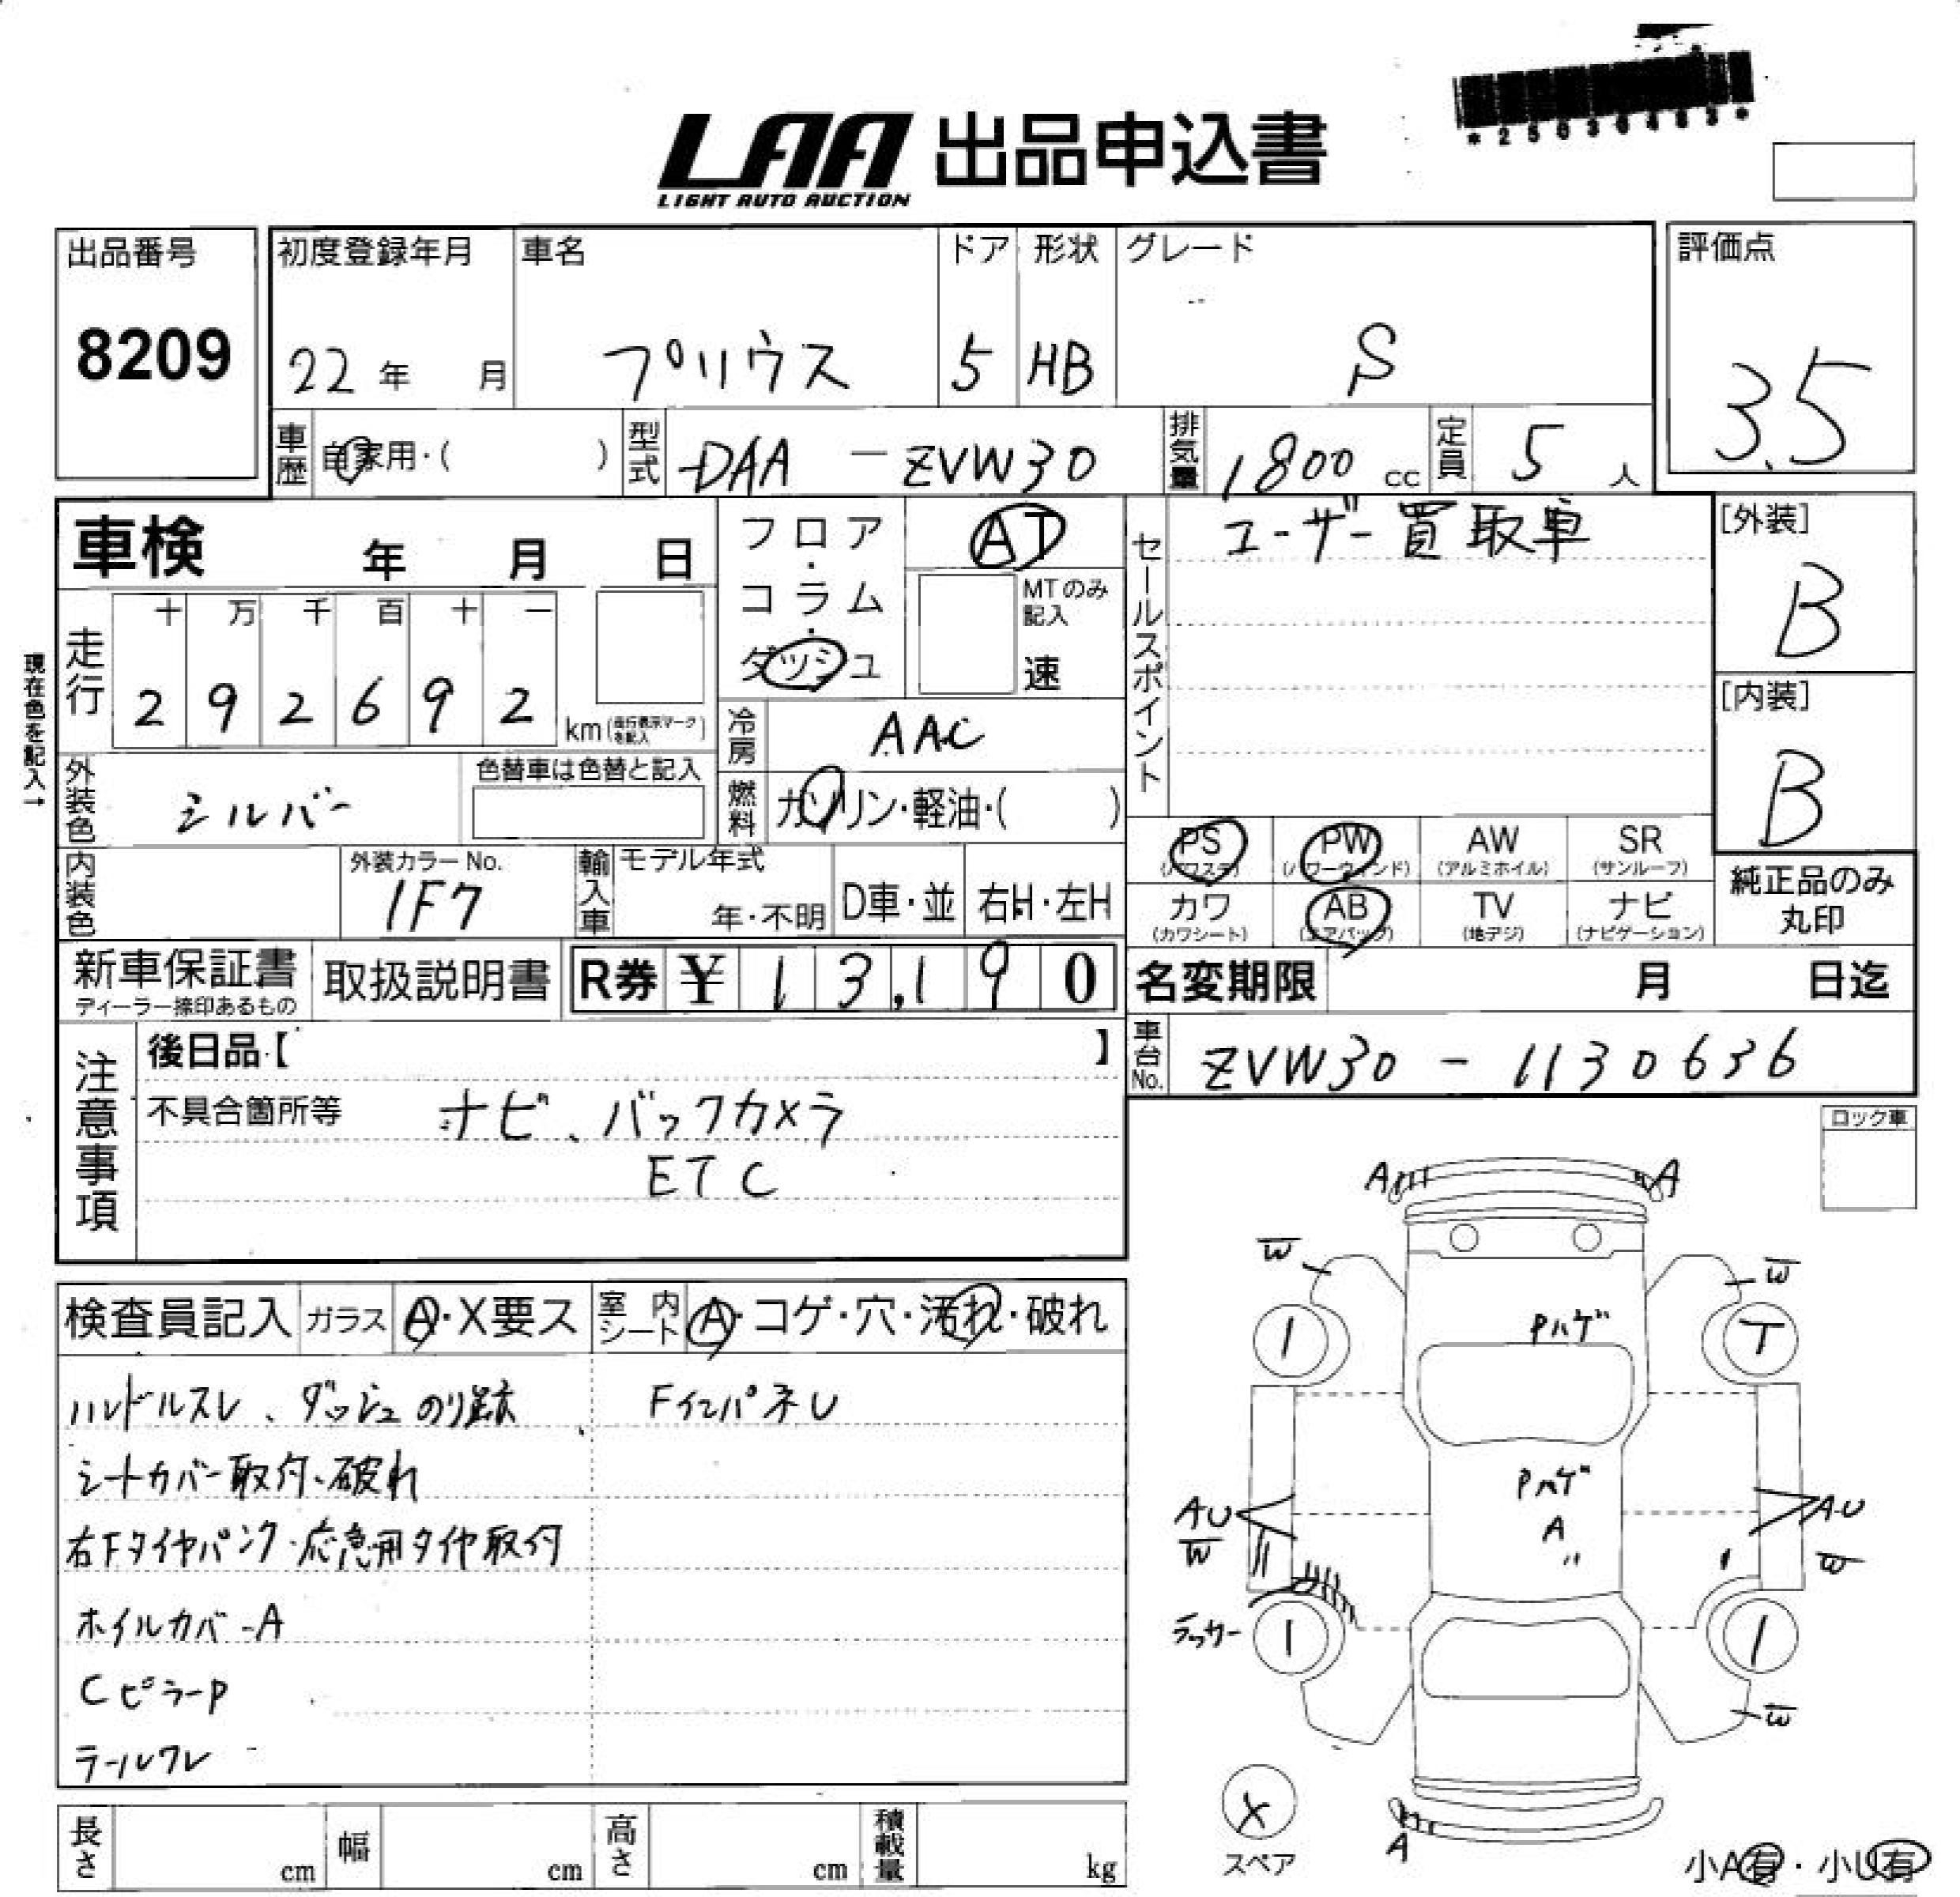 LAA 出品申込書
LIGHT AUTO AUCTION
出品番号
8209
初度登録年月
22 年 月
車名
プリウス
ドア
5
形状
HB
グレード
S
評価点
3.5
車歴 自家用・( )
型式 DAA - ZVW30
排気量 1800 cc
定員 5 人
車検 年 月 日
フロア・コラム・ダッシュ
AT
MTのみ記入
速
セールスポイント
ユーザー買取車
[外装]
B
[内装]
B
現在色を記入→
走行
十 万 千 百 十 一
2 9 2 6 9 2
km (走行表示マークを記入)
冷房 AAC
燃料 ガソリン・軽油・( )
外装色 シルバー
色替車は色替と記入
内装色
外装カラーNo.
1F7
輸入車
モデル年式
年・不明
D車・並
右H・左H
PS (パワステ)
PW (パワーウィンド)
AW (アルミホイル)
SR (サンルーフ)
カワ (カワシート)
AB (エアバック)
TV (地デジ)
ナビ (ナビゲーション)
純正品のみ丸印
新車保証書
ディーラー捺印あるもの
取扱説明書
R券 ¥ 13,190
名変期限 月 日迄
車台No. ZVW30 - 1130636
注意事項
後日品【 】
不具合箇所等 ナビ、バックカメラ
ETC
ロック車
検査員記入
ガラス A・X要ス
室内シート A・コゲ・穴・汚れ・破れ
ハンドルスレ、ダッシュのり跡
FインパネU
シートカバー取付、破れ
右Fタイヤパンク・応急用タイヤ取付
ホイルカバーA
CピラーP
テールワレ
A A
W W
Pハゲ
1 T
Pハゲ
A
〃
AU AU
W W
ラッカー
1 1
W
X
スペア
A
小A有・小U有
長さ cm
幅 cm
高さ cm
積載量 kg